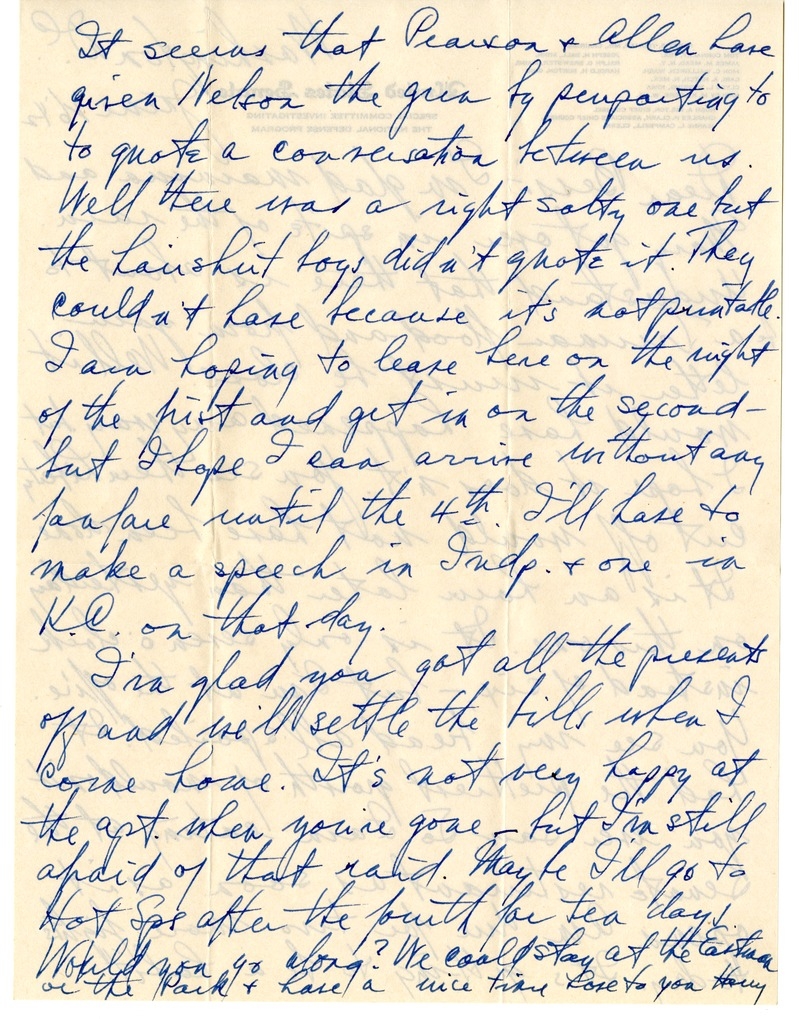 It seems that Pearson & Allen have
given Nelson the by purporting to
to quote a conversation between us.
Well there was a right salty one but
the hairshirt boys didn't quote it. They
couldn't have because it's not printable.
I am hoping to leave here on the night
of the first and get in on the second—
but I hope I can arrive without any
fanfare until the 4th. I'll have to
make a speech in Indp. & one in
K.C. on that day.
I'm glad you got all the presents
off and we'll settle the bills when I
come home. It's not very happy at
the apt. when you're gone - but I'm still
afraid of that raid. Maybe I'll go to
Hot Spgs after the fourth for ten days.
Would you go along? We could stay at the Eastman
or the Park & have a nice time Love to you Harry